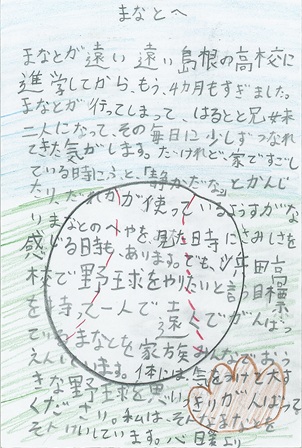 まなとへ
まなとが遠い遠い島根の高校に
進学してから、もう、4カ月もすぎました。
まなとが行ってしまって、はるとと兄妹
二人になって、その毎日に少しずつなれ
てきた気がします。だけれど、家ですごし
ている時にふと、静かだな。とかんじ
たり、だれかが使っているようすがな
いまなとのへやを、見た時にさみしさを
感じる時も、あります。でも、浜田高
校で野球をやりたいと言う目標
を持って一人で遠くでがんばっ
ているまなとを家族みんなでおう
えんしています。体には、気をつけて大す
きな野球を思いっきりがんばって
ください。私は、そんなまなとを
そんけいしています。